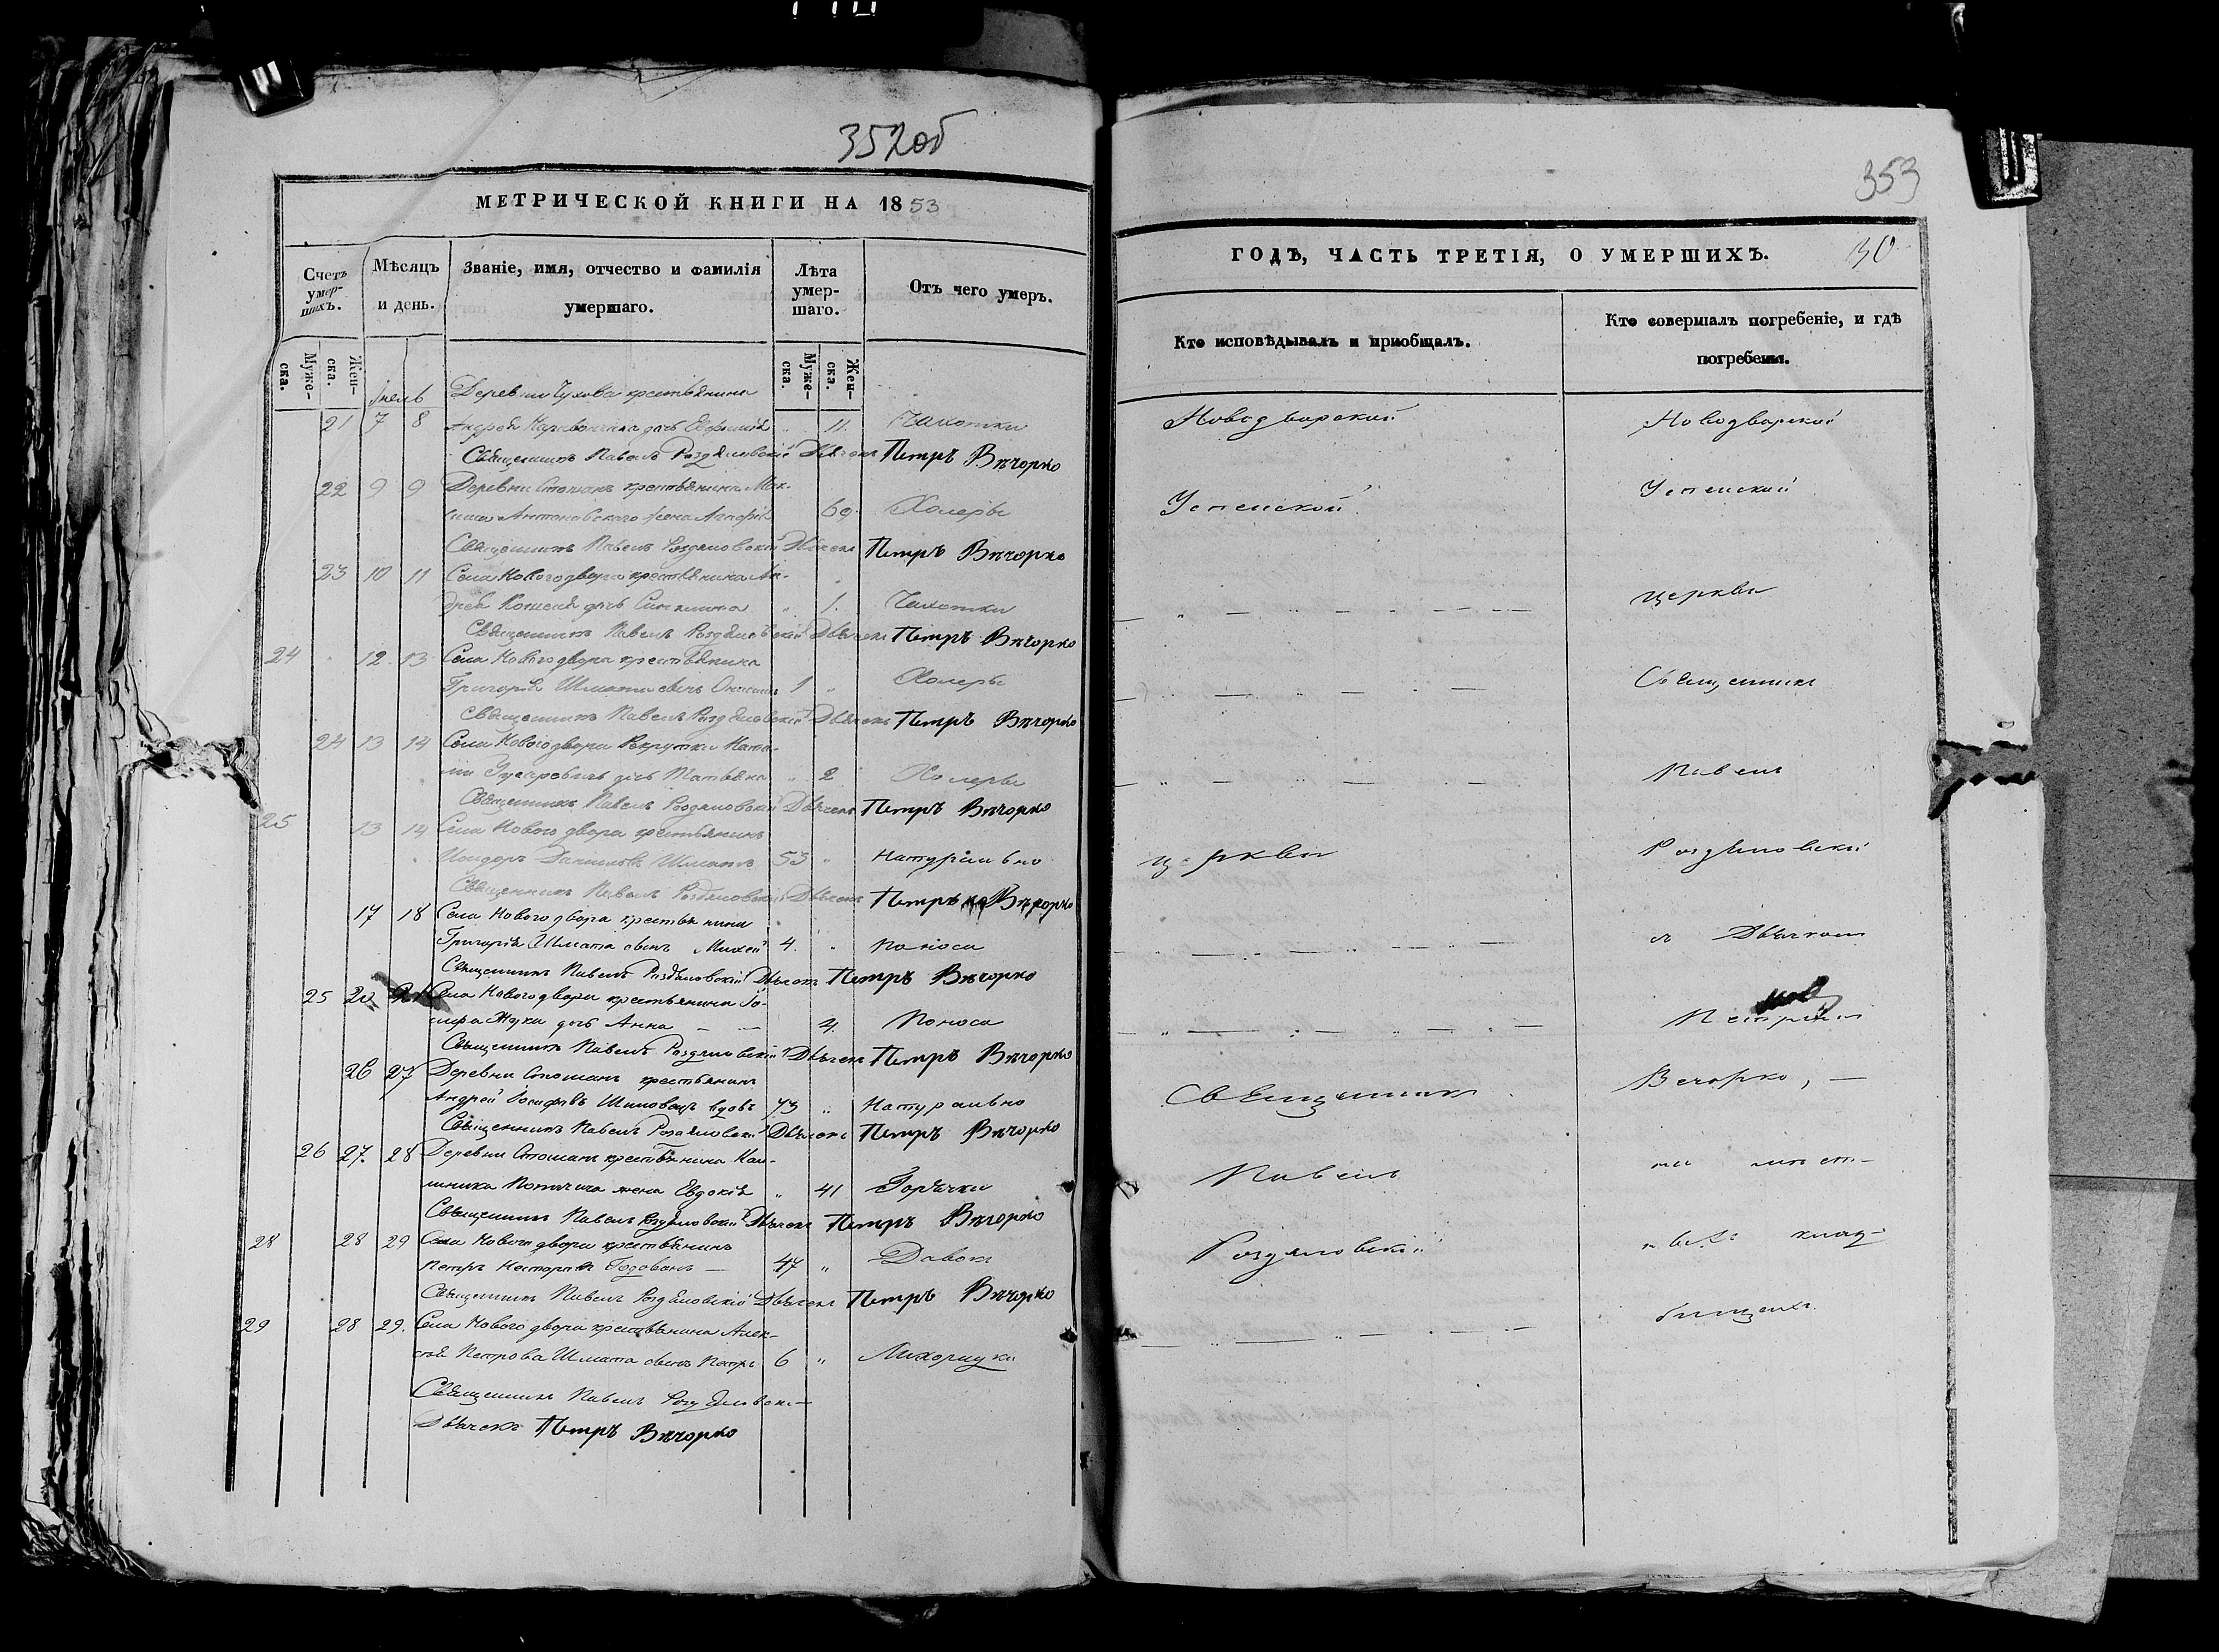 352об
МЕТРИЧЕСКОЙ КНИГИ НА 1853
Счетъ умер-шихъ.
Мѣсяцъ и день.
Званіе, имя, отчество и фамилія умершаго.
Лѣта умер-шаго.
Отъ чего умеръ.
Муже-ска. Жен-ска.
Муже-ска. Жен-ска.
Деревни крестьянина
21 7 8 Андрея дочь 11. Чахотки
Священникъ Павелъ Роздяловскій Дьячекъ Петръ Вѣчорко
22 9 9 Деревни Стошанъ крестьянина Мак-
сима Антоновского жена 69 Холеры
Священникъ Павелъ Роздяловскій Дьячекъ Петръ Вѣчорко
23 10 11 Села Новогодвора крестьянина Ан-
дрея дочь " 1. Чахотки
Священникъ Павелъ Роздяловскій Дьячекъ Петръ Вѣчорко
24 12 13 Села Новогодвора крестьянина
Григорія Шмата сынъ 1 " Холеры
Священникъ Павелъ Роздяловскій Дьячекъ Петръ Вѣчорко
24 13 14 Села Новогодвора Рекрутки
дочь " 2 Холеры
Священникъ Павелъ Роздяловскій Дьячекъ Петръ Вѣчорко
25 13 14 Села Новогодвора крестьянинъ
Исидоръ Даниловъ Шматъ 53 " Натурально
Священникъ Павелъ Роздяловскій Дьячекъ Петръ Вѣчорко
17 18 Села Новогодвора крестьянина
Григорія Шмата сынъ Михей 4. " Поноса
Священникъ Павелъ Роздяловскій Дьячекъ Петръ Вѣчорко
25 20 21 Села Новогодвора крестьянина Іо-
сифа Жука дочь Анна 4. Поноса
Священникъ Павелъ Роздяловскій Дьячекъ Петръ Вѣчорко
26 27 Деревни Стошанъ крестьянинъ
Андрей Іосифовъ вдовъ 73 " Натурально
Священникъ Павелъ Роздяловскій Дьячекъ Петръ Вѣчорко
26 27. 28 Деревни Стошанъ крестьянина Кал-
линика жена Евдокія " 41 Горячки
Священникъ Павелъ Роздяловскій Дьячекъ Петръ Вѣчорко
28 28 29 Села Новогодвора крестьянинъ
Петръ 47 "
Священникъ Павелъ Роздяловскій Дьячекъ Петръ Вѣчорко
29 28 29. Села Новогодвора крестьянина Алек-
сѣя Петрова Шмата сынъ Петръ 6 " Лихорадки
Священникъ Павелъ Роздяловскі
Дьячекъ Петръ Вѣчорко
353
ГОДЪ, ЧАСТЬ ТРЕТІЯ, О УМЕРШИХЪ. 30
Кто исповѣдывалъ и приобщалъ.
Кто совершалъ погребеніе, и гдѣ погребены.
Новодворской Новодворской
Успенской Успенской
церкви
Священникъ
Павелъ
церкви Роздяловскій
съ Дьячкомъ
Петромъ
Священникъ Вечорко,
Павелъ на мѣст-
Роздяловскій номъ клад-
бищахъ.